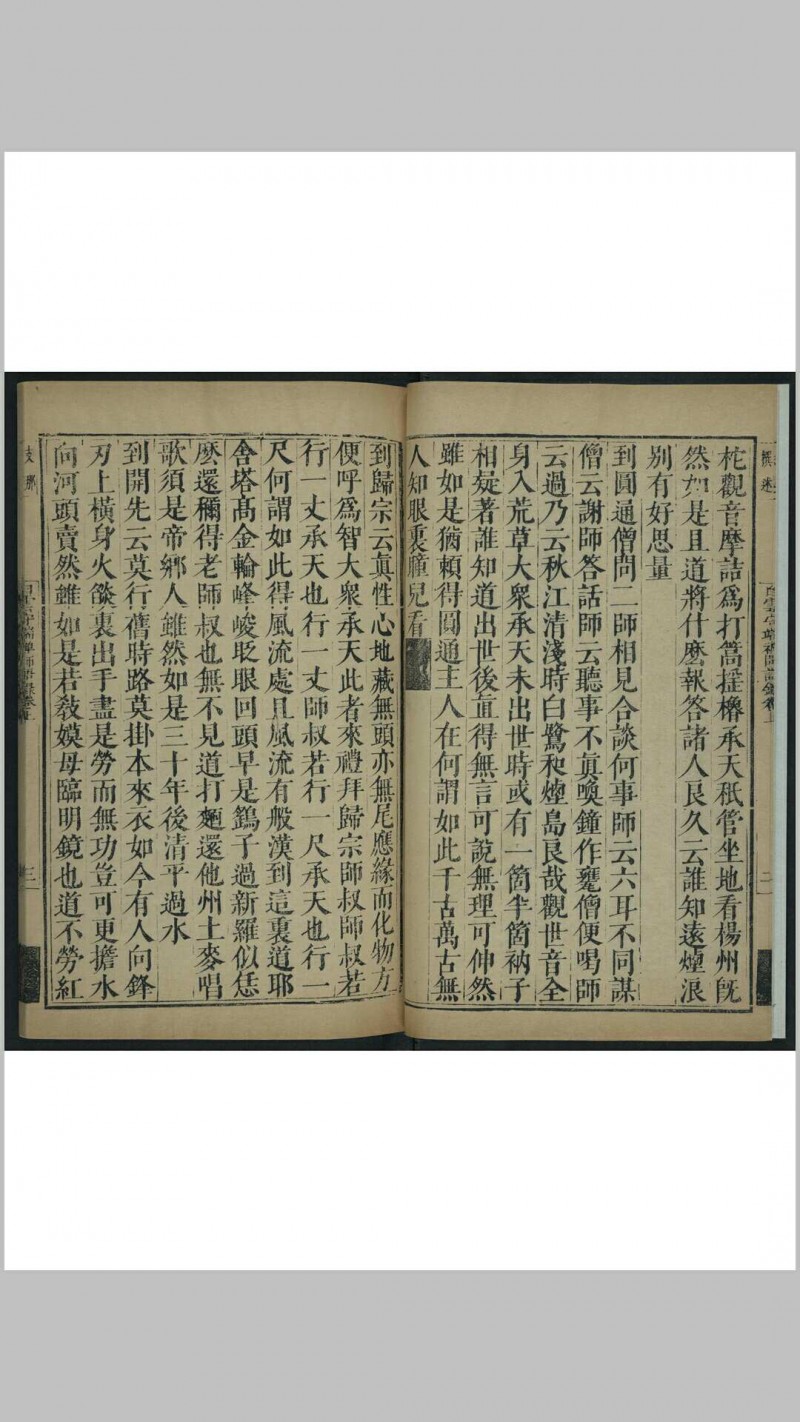 柁觀音摩詰爲打篙搖櫓承天秖管坐地看楊州旣
然如是且道將什麽報答諸人良久云誰知遠煙浪
別有好思量
到圓通僧問二師相見合談何事師云六耳不同謀
僧云謝師答話師云聽事不眞喚鐘作甕僧便喝師
云過乃云秋江清淺時白鷺和煙島良哉觀世音全
身入荒草大衆承天未出世時或有一箇半箇衲子
相疑著誰知道出世後直得無言可說無理可伸然
雖如是猶賴得圓通主人在何謂如此千古萬古無
人知眼裏瞳兒看
到歸宗云眞性心地藏無頭亦無尾應緣而化物方
便呼爲智大衆承天此者來禮拜歸宗師叔師叔若
行一丈承天也行一丈師叔若行一尺承天也行一
尺何謂如此得風流處且風流有般漢到這裏道耶
舍塔高金輪峰峻眨眼回頭早是鷂子過新羅似恁
麽還稱得老師叔也無不見道打麵還他州土麥唱
歌須是帝鄉人雖然如是三十年後清平過水
到開先云莫行舊時路莫掛本來衣如今有人向鋒
刃上橫身火燄裏出手盡是勞而無功豈可更擔水
向河頭賣然雖如是若敎嫫母臨明鏡也道不勞紅
二
三